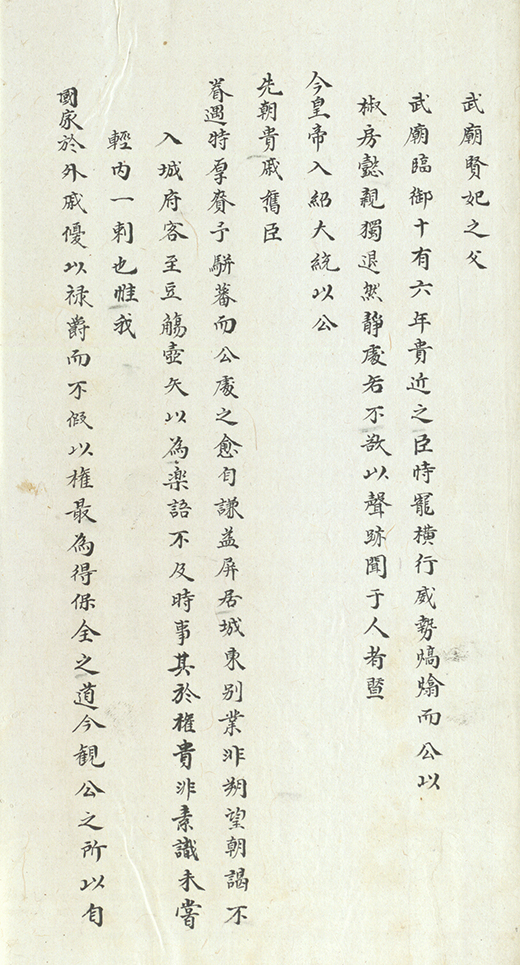 武廟賢妃之父
武廟臨御十有六年貴近之臣恃寵橫行威勢熇熻而公以
椒房懿親獨退然靜處若不欲以聲跡聞于人者暨
今皇帝入紹大統以公
先朝貴戚舊臣
眷遇特厚賚予駢蕃而公處之愈自謙益屏居城東別業非朔望朝謁不
入城府客至豆觴壺矢以為樂語不及時事其於權貴非素識未嘗
輕內一刺也惟我
國家於外戚優以祿爵而不假以權最為得保全之道今觀公之所以自